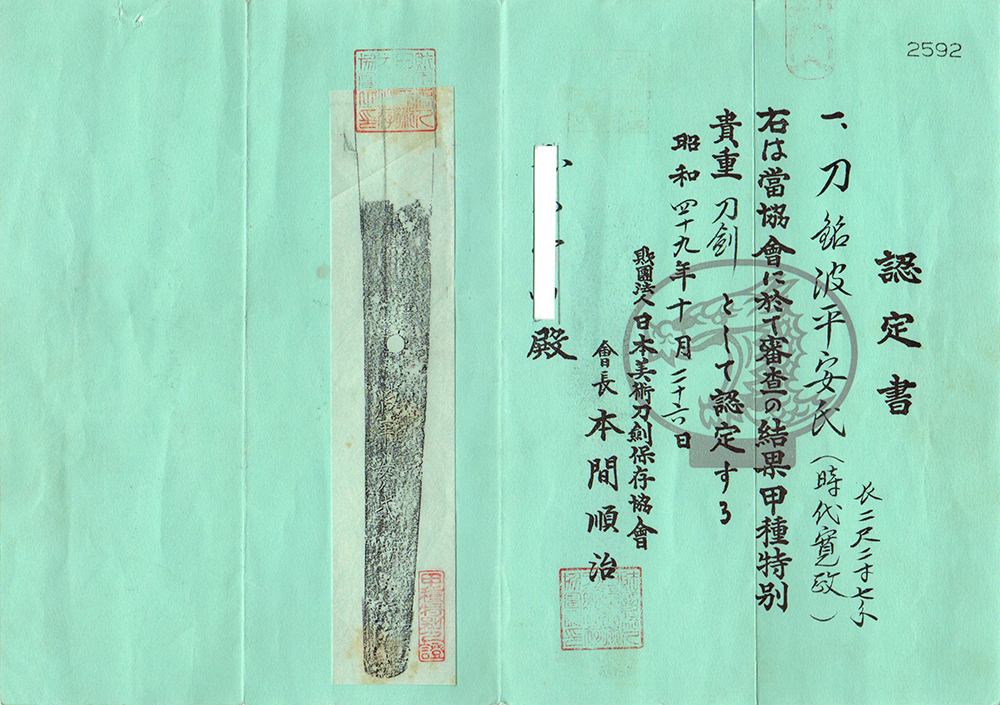 2592
認定書
一、刀 銘 波平安氏(時代寛政)
長二尺二寸七分
右は當協會に於て審査の結果甲種特別
貴重刀剣として認定する
昭和四十九年十月二十六日
財團法人日本美術刀劍保存協會
會長 本間順治
殿
甲種特別之證